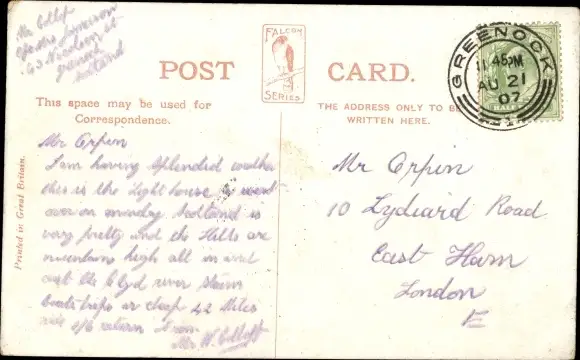 Mr Colloff
c/o Mrs Jameson
63 Nicolson St
Greenock
Scotland
POST CARD.
FALCON
SERIES
GREENOCK
11 45PM
AU 21
07
HALF
This space may be used for
Correspondence.
THE ADDRESS ONLY TO BE
WRITTEN HERE.
Printed in Great Britain.
Mr Orpin
I am having splendid weather
this is the Light house I went
over on monday Scotland is
very pretty and the Hills are
mountains high all in and
out the Clyd river steam
boats trips are cheap 42 Miles
ride 2/6 return from
Mr W. Colloff
Mr Orpin
10 Lydiard Road
East Ham
London
E